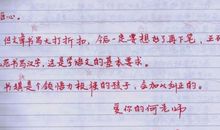 心。
但文章书写大打折扣，今后一定要想好了再下笔，正
范书写汉字，这是学语文的基本要求。
书琪是个领悟力极强的孩子，会加以纠正的。
爱你的何老师